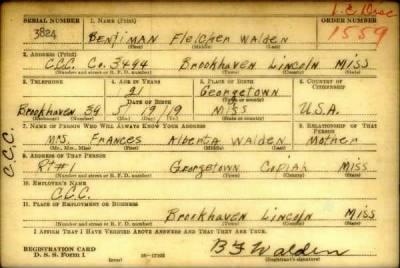 1-C Disc
SERIAL NUMBER 1. NAME (Print) ORDER NUMBER
3824 BENJIMAN Fletcher Walden 1559
(First) (Middle) (Last)
2. ADDRESS (Print)
C.C.C. Co. 3494 Brookhaven Lincoln Miss
(Number and street or R. F. D. number) (Town) (County) (State)
3. TELEPHONE 4. AGE IN YEARS 5. PLACE OF BIRTH 6. COUNTRY OF CITIZENSHIP
21 Georgetown
DATE OF BIRTH (Town or county)
Brookhaven 39 5 1 19 Miss U.S.A.
(Exchange) (Number) (Mo.) (Day) (Yr.) (State or country)
7. NAME OF PERSON WHO WILL ALWAYS KNOW YOUR ADDRESS 8. RELATIONSHIP OF THAT PERSON
Mrs. Frances Alberta Walden Mother
(Mr., Mrs., Miss) (First) (Middle) (Last)
9. ADDRESS OF THAT PERSON
Rt #1 Georgetown Copiah Miss
(Number and street or R. F. D. number) (Town) (County) (State)
10. EMPLOYER'S NAME
C.C.C.
11. PLACE OF EMPLOYMENT OR BUSINESS
Brookhaven Lincoln Miss
(Number and street or R. F. D. number) (Town) (County) (State)
I AFFIRM THAT I HAVE VERIFIED ABOVE ANSWERS AND THAT THEY ARE TRUE.
REGISTRATION CARD
D. S. S. Form 1 B F Walden
(Registrant's signature)
C.C.C.